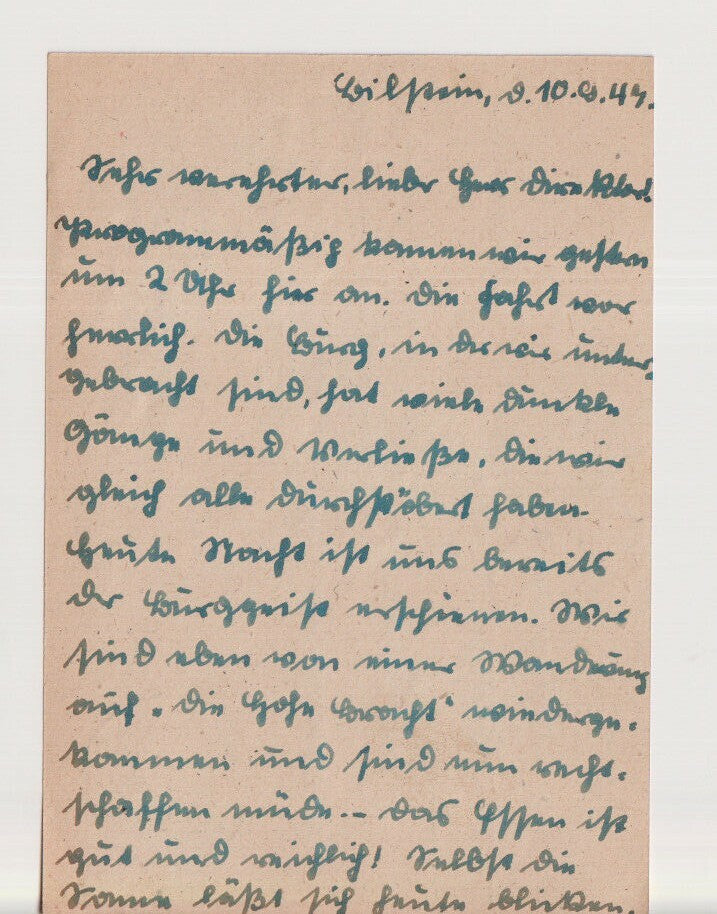 Bilstein, d. 10.9.47.
Sehr verehrter, lieber Herr Direktor!
Programmäßig kamen wir gestern
um 2 Uhr hier an. Die Fahrt war
herrlich. Die Burg, in der wir unter-
gebracht sind, hat viele dunkle
Gänge und Verließe, die wir
gleich alle durchstöbert haben.
Heute Nacht ist uns bereits
der Burggeist erschienen. Wir
sind eben von einer Wanderung
auf „die Hohe Bracht“ wiederge-
kommen und sind nun recht-
schaffen müde. – Das Essen ist
gut und reichlich! Selbst die
Sonne läßt sich heute blicken.